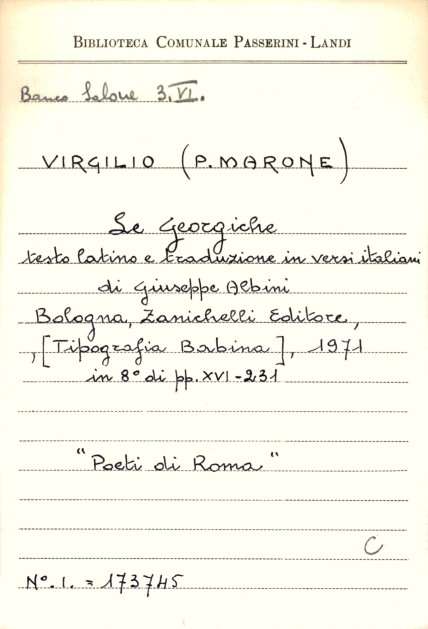 BIBLIOTECA COMUNALE PASSERINI - LANDI
Banco Salone 3.VI.
VIRGILIO (P. MARONE)
Le Georgiche
testo latino e traduzione in versi italiani
di Giuseppe Albini
Bologna, Zanichelli Editore,
,[Tipografia Babina], 1971
in 8° di pp. XVI-231
"Poeti di Roma"
C
N°. I. = 173745